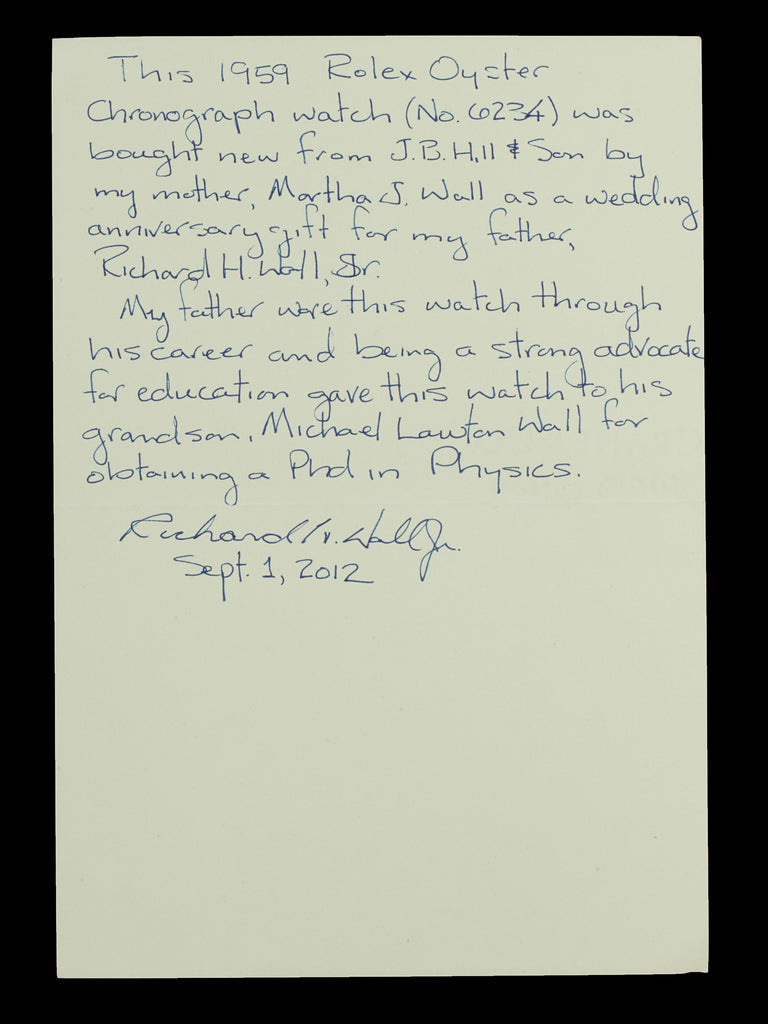 This 1959 Rolex Oyster
Chronograph watch (No. 6234) was
bought new from J.B. Hill & Son by
my mother, Martha J. Wall as a wedding
anniversary gift for my father,
Richard H. Wall, Sr.
My father wore this watch through
his career and being a strong advocate
for education gave this watch to his
grandson, Michael Lawton Wall for
obtaining a Phd in Physics.
Richard H. Wall Jr.
Sept. 1, 2012